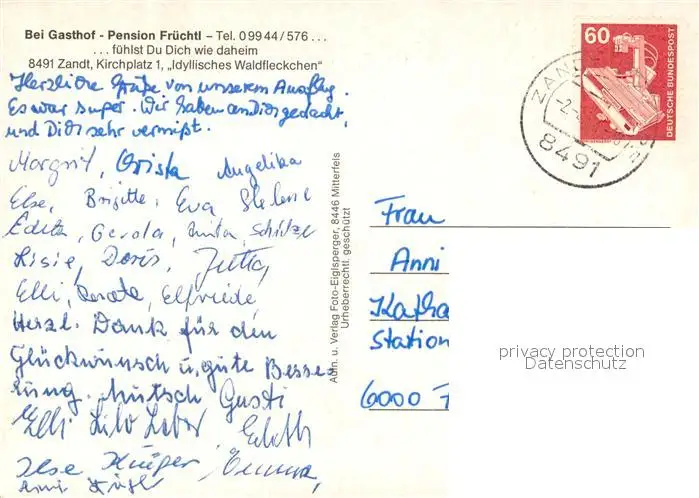 Bei Gasthof - Pension Früchtl – Tel. 09944/576 ...
... fühlst Du Dich wie daheim
8491 Zandt, Kirchplatz 1, „Idyllisches Waldfleckchen“
Herzliche Grüße von unserem Ausflug.
Es war super. Wir haben an Dich gedacht
und Dich sehr vermißt.
Margrit, Christa Angelika
Else, Brigitte, Eva Helene
Edith, Gerda, Anita, Schätzl
Lisie, Doris, Jutta,
Elli, Renate, Elfriede,
Herzl. Dank für den
Glückwunsch u. gute Besse-
rung. Gusti
Elli Lilo Edith
Ilse Emma,
Anni
Aufn. u. Verlag Foto-Eiglsperger, 8446 Mitterfels
Urheberrechtl. geschützt
60
DEUTSCHE BUNDESPOST
ZANDT
8491
Frau
Anni
Katha
Station
6000 F
privacy protection
Datenschutz